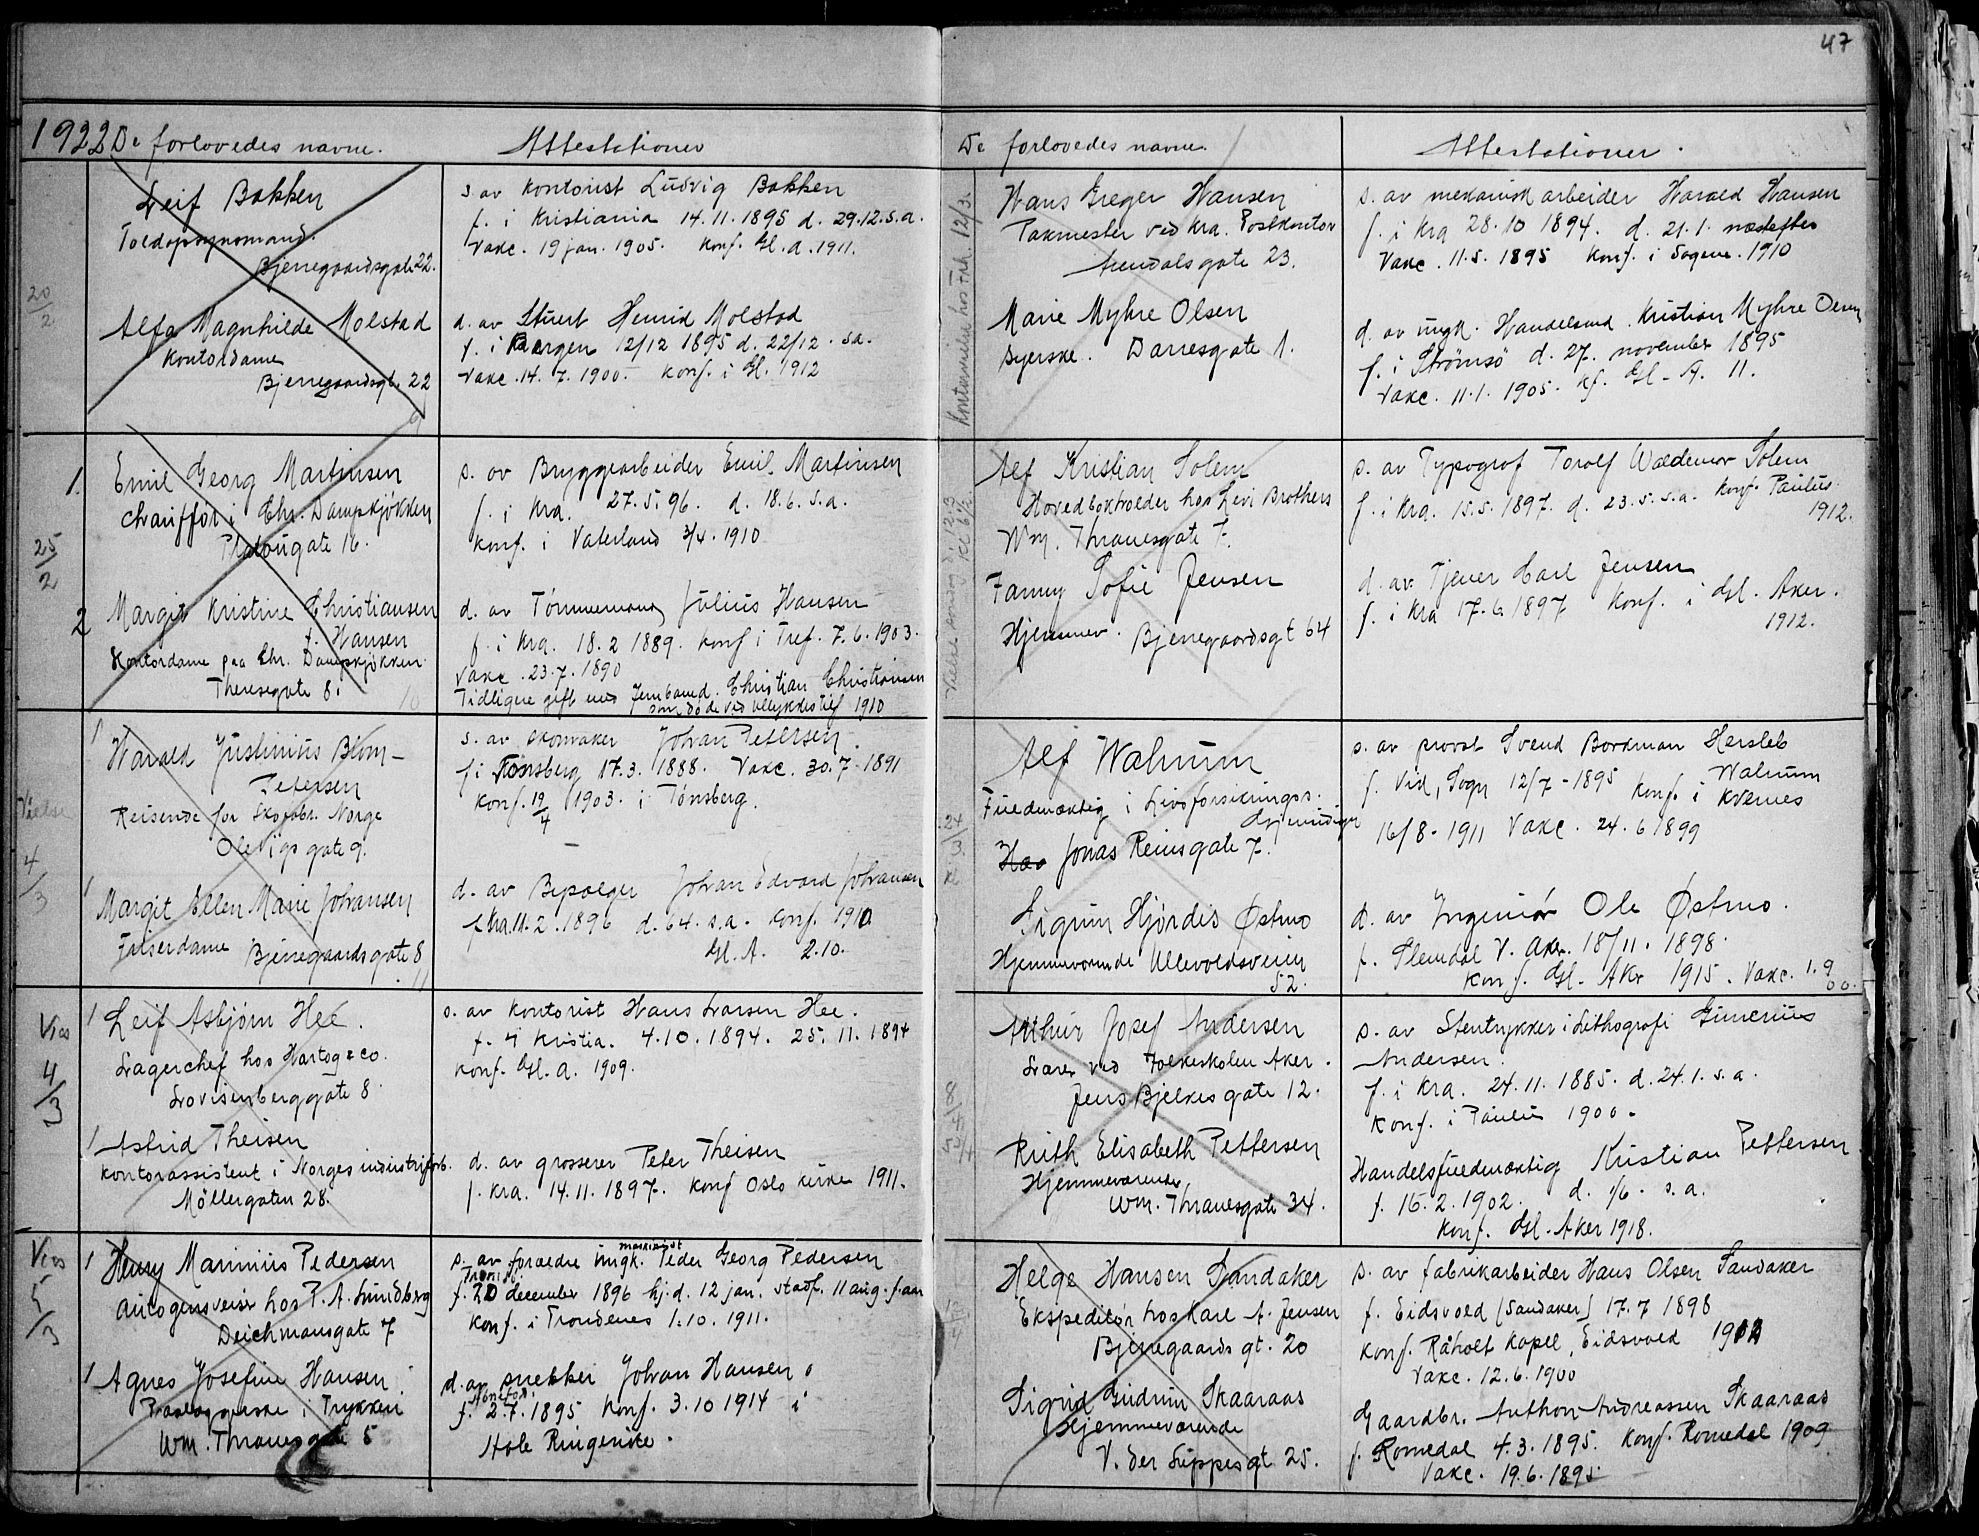 47
1922 De forlovedes navne. Attestationer
Leif Bakken
Toldopsynsmand.
Bjerregaardsgate 22.
s. av kontorist Ludvig Bakken
f. i Kristiania 14.11.1895 d. 29.12.s.a.
Vakc. 19 jan. 1905. Konf. Gl. A. 1911.
20/2
Alfa Magnhilde Molstad
Kontordame
Bjerregaardsgt. 22
9
d. av Stuert Henrid Molstad
f. i Bergen 12/12 1895 d. 22/12. sa.
Vakc. 14. 7. 1900. Konf. i Gl. 1912
1. Emil Georg Martinsen
Chauffør i Chr. Dampkjøkken
Platougate 16.
s. av Bryggearbeider Emil Martinsen
f. i Kra. 27.5.96. d. 18.6. s.a.
Konf. i Vaterland 3/4. 1910
25/2
2 Margit Kristine Christiansen
f. Hansen
Kontordame paa Chr. Dampkjøkken
Theresegate 8.
10
d. av Tømmermand Julius Hansen
f. i Kra. 18.2 1889. Konf i Tref. 7.6.1903.
Vakc. 23.7.1890
Tidligere gift med Jernbanmd. Christian Christiansen
som døde ved ulykkestilf 1910
1 Harald Justinius Blom-
Petersen
Reisende for Skofabr. Norge
Ole Vigs gate 9.
s. av skomaker Johan Pettersen.
f i Tønsberg 17.3. 1888. Vakc. 30.7-1891
Konf. 19/4 1903. i Tønsberg.
Vielse 4/3
1 Margit Ellen Marie Johansen
Friserdame Bjerregaardsgate 8
11
d. av Johan Edvard Johansen
f Kra. 11.2.1896 d. 6.4. s.a. Konf. 1910
Gl. A. 2.10.
1 Leif Asbjørn Hee.
Lagerchef hos Hartog & co.
Lovisenberggate 8
s. av kontorist Hans Larsen Hee.
f. i Kristia. 4.10.1894. 25. 11. 1894
Konf. Gl. A. 1909.
Vies 4/3
1 Astrid Theisen
Kontorassistent i Norges industriforb.
Møllergaten 28.
d. av grosserer Peter Theisen
f. Kra. 14.11.1897. Konf Oslo kirke 1911.
Vies 5/3
1 Henry Marinius Pedersen
Autogensveiser hos P. A. Lundberg
Deichmansgate 7
maskinist
s. av forældre ungk. Peder Georg Pedersen
f. 20 december 1896 hj. d. 12 jan. stadf. 11 aug. f. aar
Konf. i Trondenes 1.10.1911.
1 Agnes Josefine Hansen
i Trykkeri
Wm. Thranesgate 5
d. av snekker Johan Hansen
Hønefos.
f. 2.7.1895 Konf. 3.10 1914 i
Hole Ringerike.
De forlovedes navne. Attestationer.
12/3.
Hans Greger Hansen
Pakmester ved Kra. Postkontor
Arendalsgate 23.
s. av mekanisk arbeider Harald Hansen
f. i Kra 28.10 1894. d. 21.1. næstefter
Vakc. 11.5. 1895 Konf. i Sagene. 1910
Marie Myhre Olsen
Syerske. Darresgate 1.
d. av ungk. Handelsmd. Kristian Myhre Olsen
f. i Strømsø d. 27. november 1895
Vakc. 11.1. 1905. Kf. Gl-A. 11.
Alf Kristian Solem
Hovedbokholder hos Levi Brothers
Wm. Thranesgate 7.
s. av Typograf Torolf Waldemar Solem
f. i Kra. 15.5.1897. d. 23.5. s.a. Konf. Paulus.
1912.
Fanny Sofie Jensen
Hjemmev. Bjerregaardsgt 64
d. av Tjener Carl Jensen
f. i Kra 17.6.1897 Konf. i Gl. Aker.
1912.
Alf Walnum
Fuldmægtig i Livsforsikringss.
Gjensidige
Jonas Reinsgate 7.
s. av provst Svend Bordman Hersleb
Walnum
f. Vid, Sogn 12/7-1895 Konf. i Kvernes
16/8-1911 Vakc. 24. 6 1899
Sigrun Hjørdis Østmo
Hjemmeværende Ullevoldsveien
52.
d. av Ingeniør Ole Østmo.
f. Slemdal V. Aker. 18/11. 1898.
Konf. Gl-Aker 1915. Vakc. 1.9
00.
Arthur Josef Andersen
Lærer ved Folkeskolen Aker.
Jens Bjelkes gate 12.
s. av Stentrykker i Lithografi Gunerius
Andersen.
f. i Kra. 24.11.1885. d. 24.1. s.a.
Konf. i Paulus 1900.
Ruth Elisabeth Pettersen
Hjemmeværende
Wm. Thranesgate 34.
Handelsfuldmægtig Kristian Pettersen
f. 16.2.1902. d. 1/6. s.a.
Konf. Gl-Aker 1918.
Helge Hansen Sandaker
Ekspeditør hos Karl A. Jensen
Bjerregaards gt. 20
s. av fabrikarbeider Hans Olsen Sandaker
f. Eidsvold (Sandaker) 17.7 1898
Konf. Råholt Kapel, Eidsvold
Vakc. 12.6.1900
Sigrid Gudrun Skaaraas
Hjemmeværende
V. der Lippes gt 25.
Gaardbr. Anthon Andreassen Skaaraas
f. Romedal 4.3.1895. Konf. Romedal 1909.
Vakc. 19.6.1895